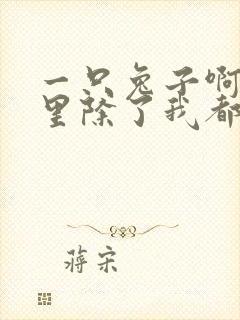 一只兔子啊
里除了我都
蒋宋